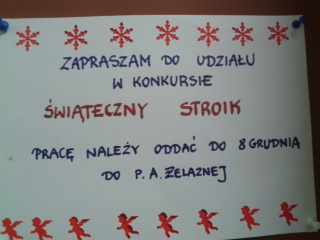 ZAPRASZAM DO UDZIAŁU
W KONKURSIE
ŚWIĄTECZNY STROIK
PRACĘ NALEŻY ODDAĆ DO 8 GRUDNIA
DO P. A. ŻELAZNEJ